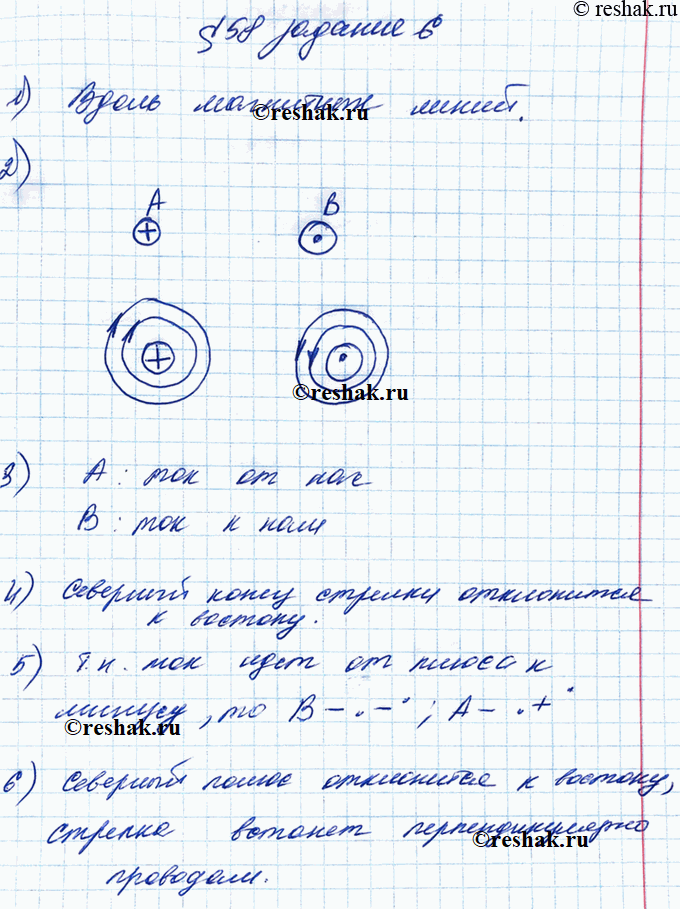 ©reshak.ru
§58 задание 6
1) Вдоль магнитных линий.
©reshak.ru
2)
А В
+ •
+ •
©reshak.ru
3) А: ток от нас
В: ток к нам
4) Северный конец стрелки отклонится
к востоку.
5) Т.к. ток идет от плюса к
минусу, то В – „–“; А – „+“
©reshak.ru
6) Северный полюс отклонится к востоку,
стрелка встанет перпендикулярно
©reshak.ru
проводам.